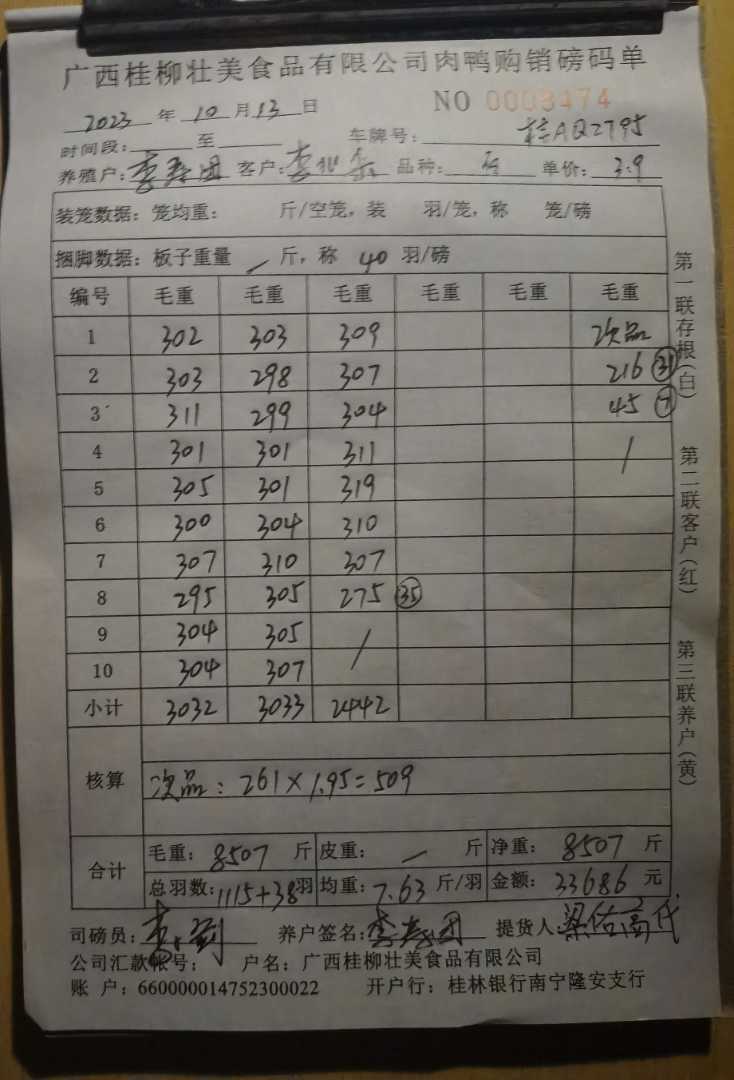 广西桂柳壮美食品有限公司肉鸭购销磅码单
2023 年 10 月 13 日 NO 0003474
时间段: 至 车牌号: 桂AQ2795
养殖户: 李寿团 客户: 李 品种: 单价: 3.9
装笼数据: 笼均重: 斤/空笼, 装 羽/笼, 称 笼/磅
捆脚数据: 板子重量 / 斤, 称 40 羽/磅
编号 毛重 毛重 毛重 毛重 毛重 毛重
1 302 303 309 次品
2 303 298 307 216 31
3 311 299 304 45 7
4 301 301 311 /
5 305 301 319
6 300 304 310
7 307 310 307
8 295 305 275 35
9 304 305 /
10 304 307
小计 3032 3033 2442
核算 次品: 261×1.95=509
合计 毛重: 8507 斤 皮重: / 斤 净重: 8507 斤
总羽数: 1115+38羽 均重: 7.63 斤/羽 金额: 33686 元
司磅员: 养户签名: 李寿团 提货人: 梁佑高代
公司汇款帐号: 户名: 广西桂柳壮美食品有限公司
账 户: 660000014752300022 开户行: 桂林银行南宁隆安支行
第一联存根(白)
第二联客户(红)
第三联养户(黄)